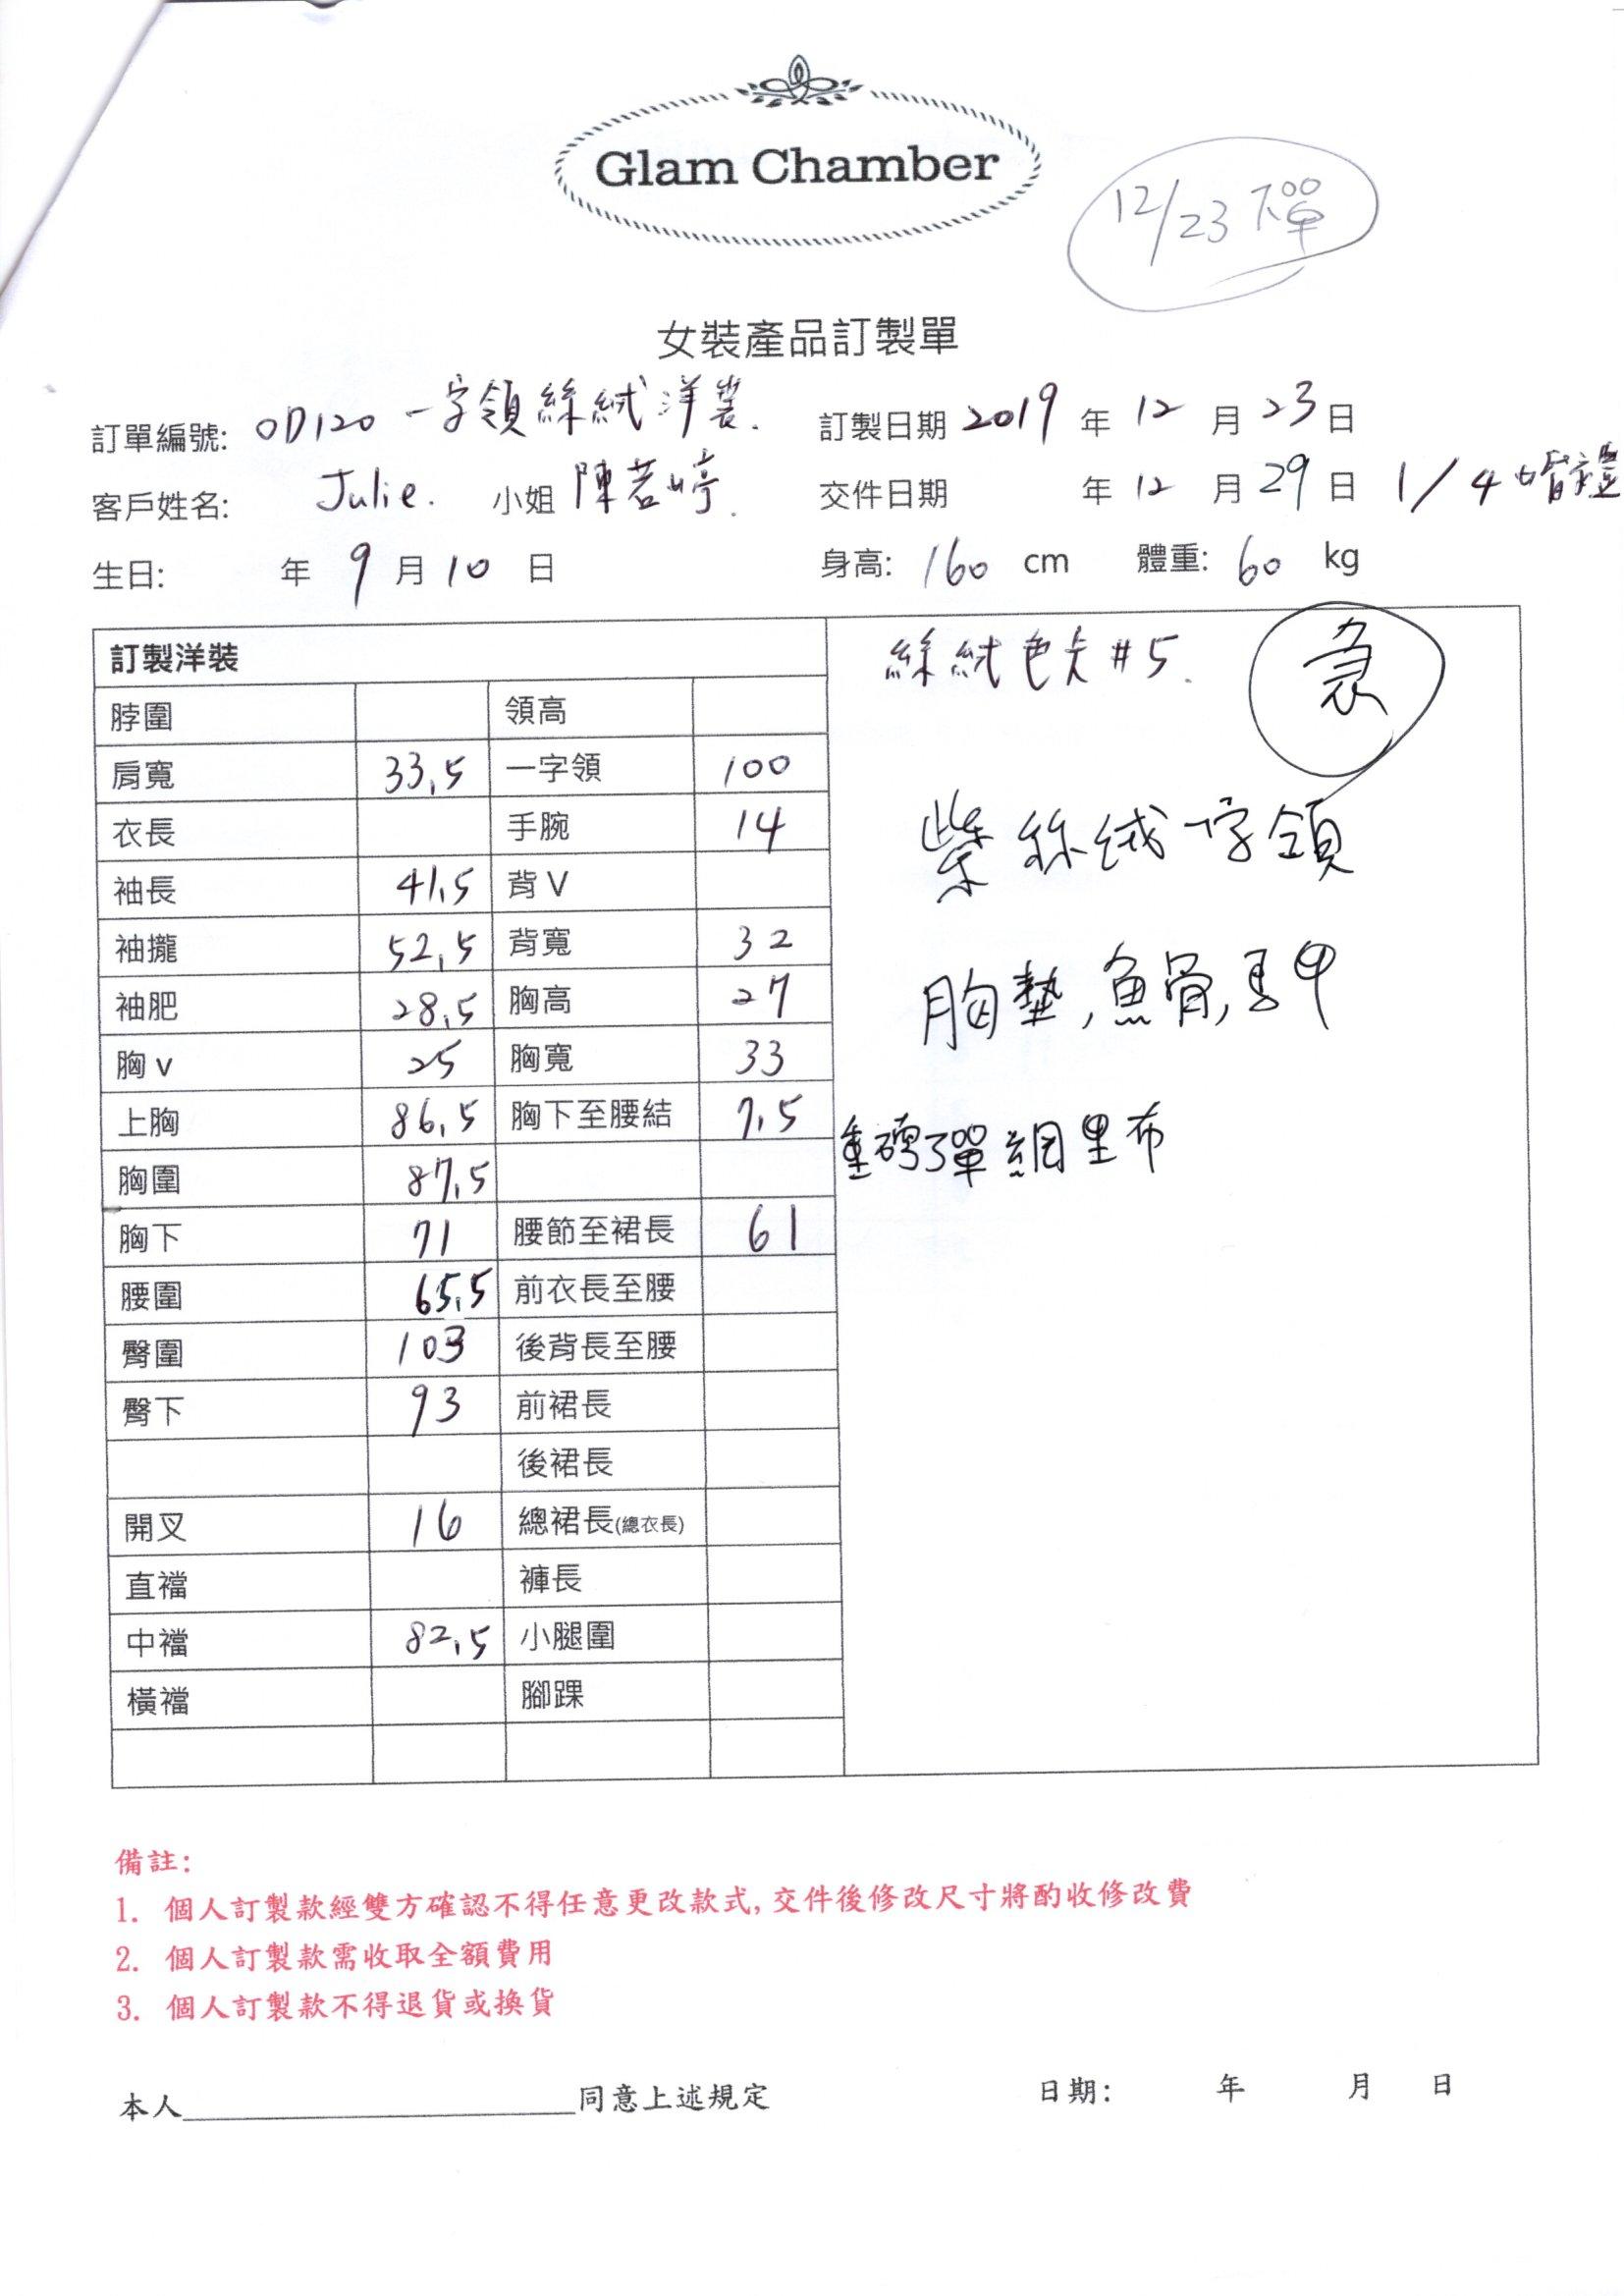 Glam Chamber
12/23 下單
女裝產品訂製單
訂單編號: OD120 一字領絲絨洋裝. 訂製日期 2019 年 12 月 23 日
客戶姓名: Julie. 小姐 陳若婷. 交件日期 年 12 月 29 日 1/4 婚禮
生日: 年 9 月 10 日 身高: 160 cm 體重: 60 kg
訂製洋裝
脖圍 領高
肩寬 33.5 一字領 100
衣長 手腕 14
袖長 41.5 背 V
袖攏 52.5 背寬 32
袖肥 28.5 胸高 27
胸 v 25 胸寬 33
上胸 86.5 胸下至腰結 7.5
胸圍 87.5
胸下 71 腰節至裙長 61
腰圍 65.5 前衣長至腰
臀圍 103 後背長至腰
臀下 93 前裙長
後裙長
開叉 16 總裙長(總衣長)
直襠 褲長
中襠 82.5 小腿圍
橫襠 腳踝
絲絨色卡#5.
急
紫絲绒一字領
胸墊,魚骨,馬甲
重磅彈網里布
備註:
1. 個人訂製款經雙方確認不得任意更改款式, 交件後修改尺寸將酌收修改費
2. 個人訂製款需收取全額費用
3. 個人訂製款不得退貨或換貨
本人____________________同意上述規定 日期: 年 月 日